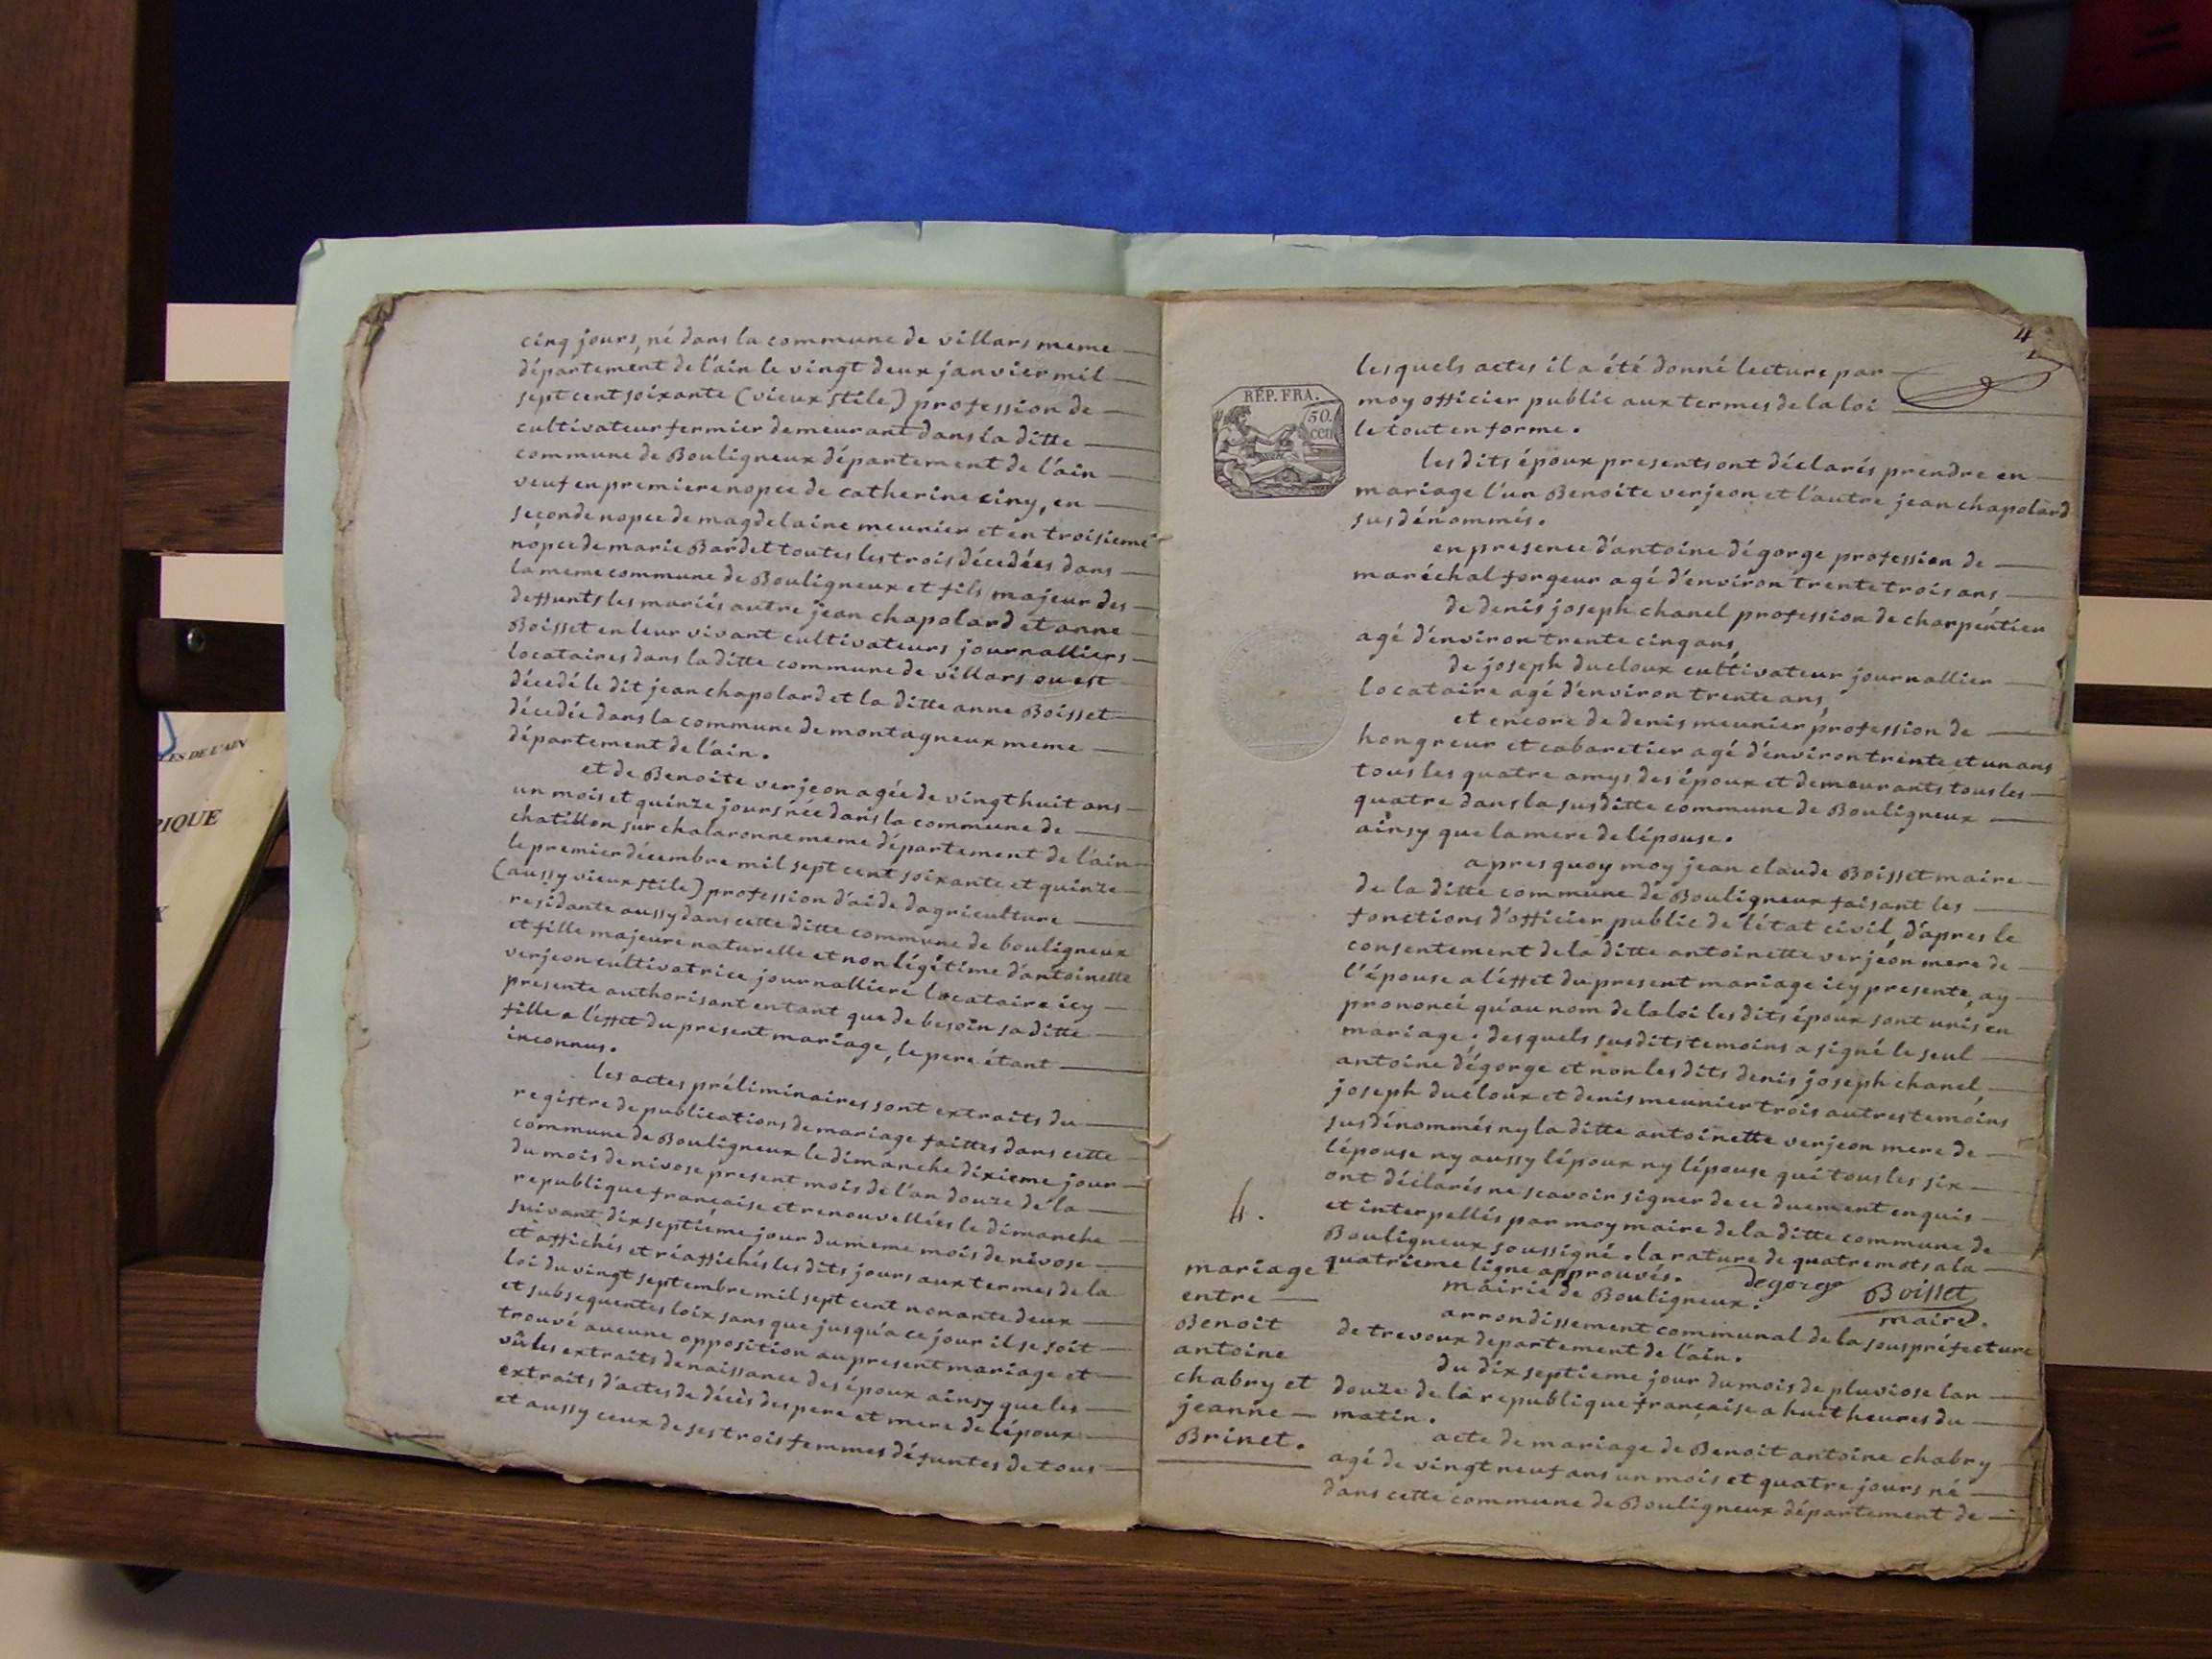 cinq jours, né dans la commune de villars meme
département de l'ain le vingt deux janvier mil
sept cent soixante (vieux stile) profession de
cultivateur fermier demeurant dans la ditte
commune de Bouligneux département de l'ain
veuf en premiere nopce de catherine ciny, en
seconde nopce de magdelaine meunier et en troisieme
nopce de marie Bardet toutes les trois décedées dans
la meme commune de Bouligneux et fils majeur des
deffunts les mariés autre jean chapolard et anne
Boisset en leur vivant cultivateurs journalliers
locataires dans la ditte commune de villars ou est
décedé le dit jean chapolard et la ditte anne Boisset
décedée dans la commune de montagneux meme
département de l'ain.
et de Benoite verjeon agée de vingt huit ans
un mois et quinze jours née dans la commune de
chatillon sur chalaronne meme département de l'ain
le premier décembre mil sept cent soixante et quinze
(aussy vieux stile) profession d'aide dagriculture
residante aussy dans cette ditte commune de bouligneux
et fille majeure naturelle et non légitime d'antoinette
verjeon cultivatrice journalliere locataire icy
présente authorisant entant que de besoin sa ditte
fille a l'effet du présent mariage, le pere étant
inconnus.
les actes préliminaires sont extraits du
registre de publications de mariage faittes dans cette
commune de Bouligneux le dimanche dixieme jour
du mois de nivose present mois de l'an douze de la
republique française et renouvellées le dimanche
suivant dix septiéme jour du meme mois de nivose
et affichés et réaffichés les dits jours aux termes de la
loi du vingt septembre mil sept cent nonante deux
et subsequentes loix sans que jusqu'a ce jour il se soit
trouvé aucune opposition au present mariage et
vûles extraits de naissance des époux ainsy que les
extraits d'actes de décès des pere et mere de l'époux
et aussy ceux de ses trois femmes défuntes de tous
4
lesquels actes il a été donné lecture par
moy officier public aux termes de la loi
le tout en forme.
RÉP. FRA.
50.
cen
les dits époux presents ont déclarés prendre en
mariage l'un Benoite verjeon et l'autre jean chapolard
susdénommés.
en presence d'antoine dégorge profession de
maréchal forgeur agé d'environ trente trois ans
de denis joseph chanel profession de charpentier
agé d'environ trente cinq ans,
de joseph ducloux cultivateur journallier
locataire agé d'environ trente ans,
et encore de denis meunier profession de
hongreur et cabaretier agé d'environ trente et un ans
tous les quatre amys des époux et demeurants tous les
quatre dans la susditte commune de Bouligneux
ainsy que la mere de lépouse.
apres quoy moy jean claude Boisset maire
de la ditte commune de Bouligneux faisant les
fonctions d'officier public de l'état civil, d'apres le
consentement de la ditte antoinette verjeon mere de
l'épouse a l'effet du present mariage icy presente, ay
prononcé qu'au nom de la loi les dits époux sont unis en
mariage; desquels susdits temoins a signé le seul
antoine dégorge et non les dits denis joseph chanel,
joseph ducloux et denis meunier trois autres temoins
susdénommés ny la ditte antoinette verjeon mere de
lépouse ny aussy lépoux ny lépouse qui tous les six
ont déclarés ne scavoir signer de ce duement enquis
et interpellés par moy maire de la ditte commune de
Bouligneux soussigné. la rature de quatre mots a la
quatrieme ligne approuvés. degorge Boisset
maire.
4.
mariage
entre
Benoit
antoine
chabry et
jeanne
Brinet.
mairie de Bouligneux.
arrondissement communal de la souspréfecture
de trevoux departement de l'ain.
du dix septieme jour du mois de pluviose lan
douze de la republique française a huit heures du
matin.
acte de mariage de Benoit antoine chabry
agé de vingt neuf ans un mois et quatre jours né
dans cette commune de Bouligneux département de
ES DE L'AIN
RIQUE